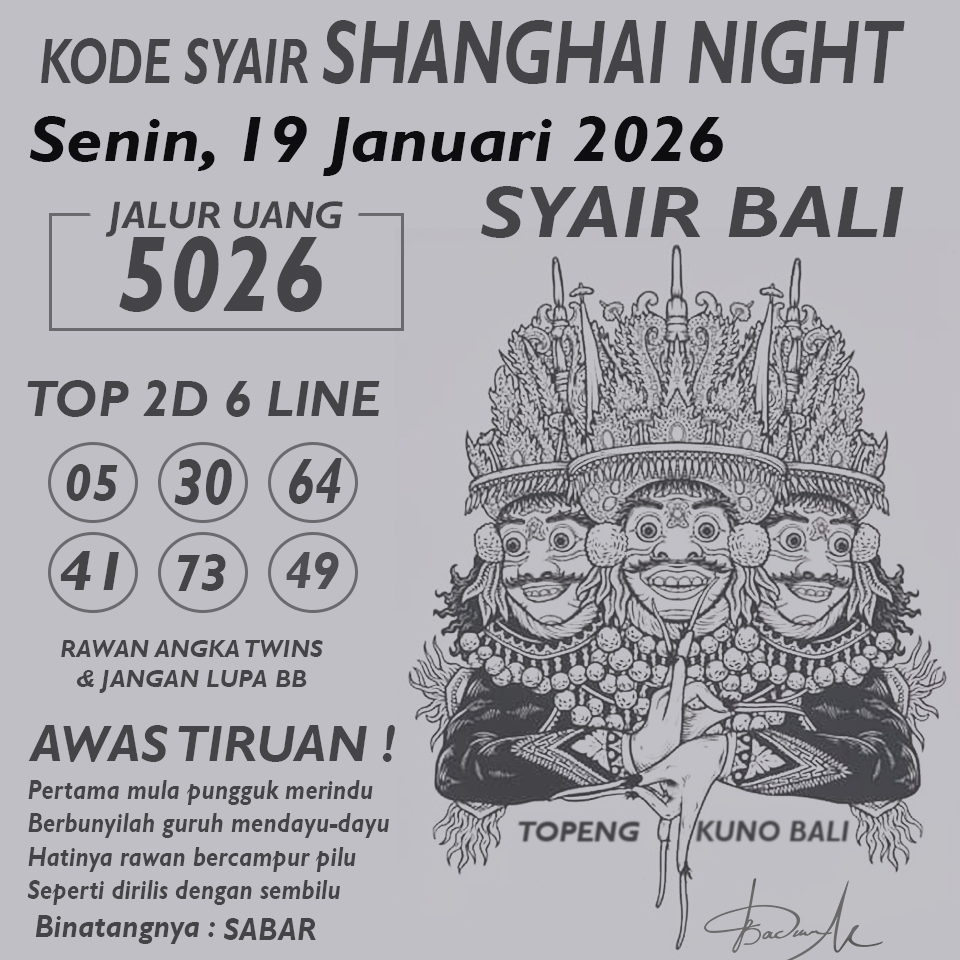 KODE SYAIR SHANGHAI NIGHT
Senin, 19 Januari 2026
SYAIR BALI
JALUR UANG
5026
TOP 2D 6 LINE
05 30 64
41 73 49
RAWAN ANGKA TWINS
& JANGAN LUPA BB
AWAS TIRUAN !
Pertama mula pungguk merindu
Berbunyilah guruh mendayu-dayu
Hatinya rawan bercampur pilu
Seperti dirilis dengan sembilu
Binatangnya : SABAR
TOPENG KUNO BALI